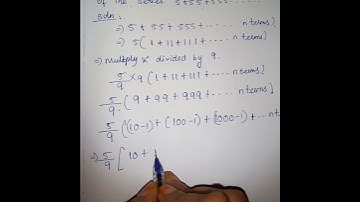 of the series 5+55+555......
soln:
⇒) 5 + 55 + 555 + ..... n terms)
⇒) 5 ( 1 + 11 + 111 + ..... n terms)
⇒) Multiply & divided by 9.
5/9 × 9 ( 1 + 11 + 111 + .... n terms)
5/9 . ( 9 + 99 + 999 + .... n terms)
5/9 ( (10-1) + (100-1) + (1000-1) + .. n t
⇒) 5/9 [ 10 + 1